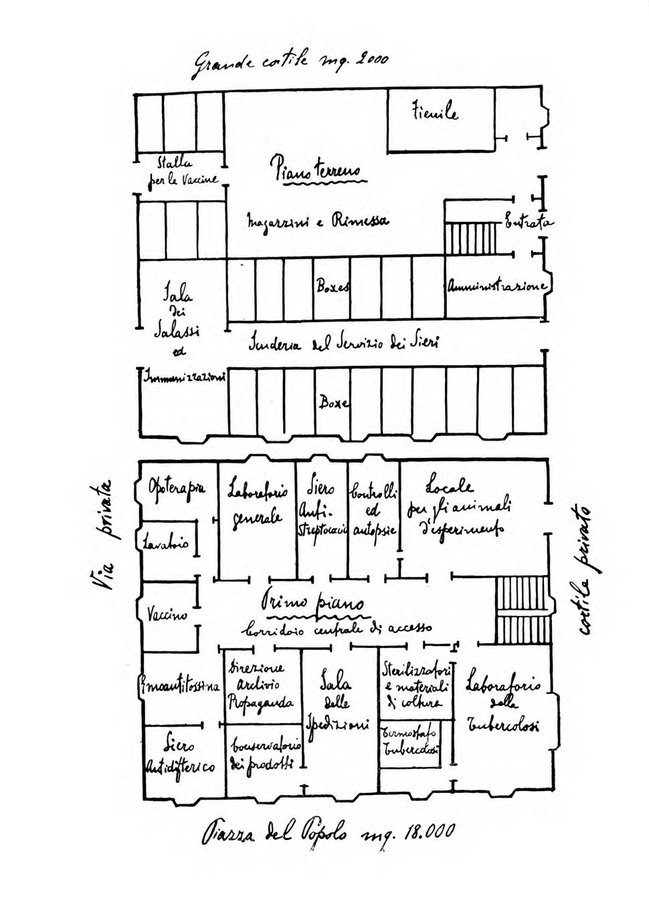 Grande cortile mq. 2000
Fienile
Stalla
per le Vaccine
Piano terreno
Magazzini e Rimessa
Entrata
Sala
dei
Salassi
ed
Immunizzazioni
Boxes
Amministrazione
Scuderia del Servizio dei Sieri
Boxe
Via privata
Opoterapia
Laboratorio
generale
Siero
Anti-
streptococcico
Controlli
ed
autopsie
Locale
per gli animali
d'esperimento
Lavatoio
cortile privato
Vaccino
Primo piano
Corridoio centrale di accesso
Emoantitossina
Direzione
Archivio
Propaganda
Sala
delle
Spedizioni
Sterilizzatori
e materiali
di coltura
Laboratorio
della
Tubercolosi
Siero
Antidifterico
Conservatorio
dei prodotti
Termostato
Tubercolosi
Piazza del Popolo mq. 18.000